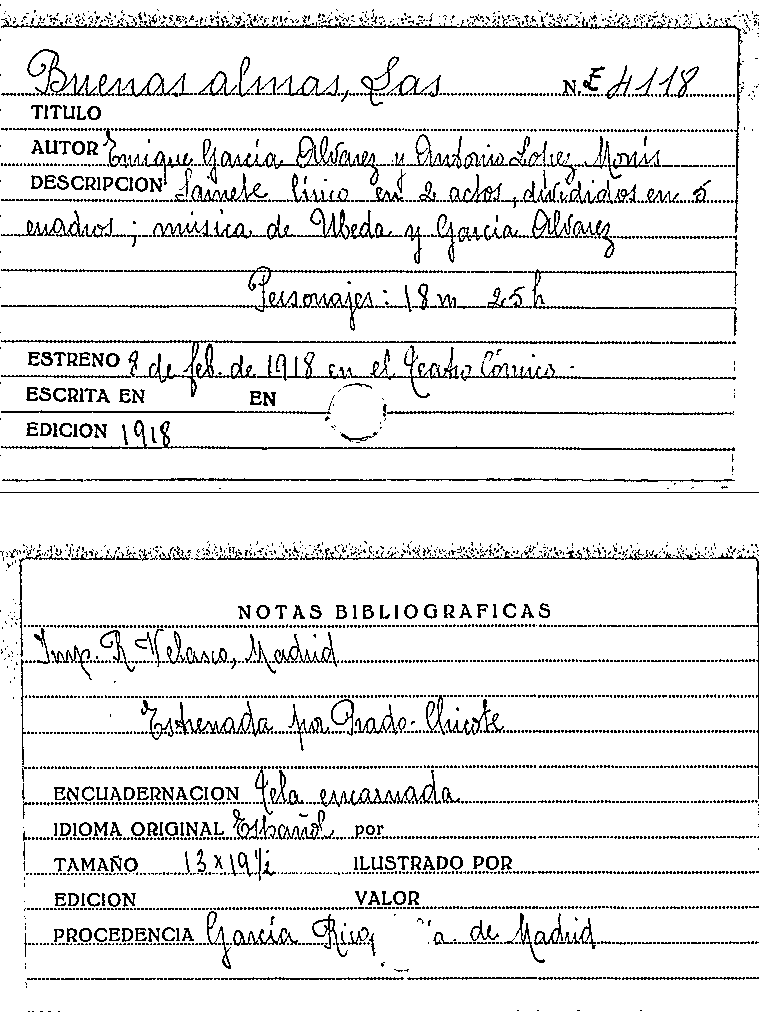 Buenas almas, Las N. E 4118
TITULO
AUTOR Enrique García Alvarez y Antonio Lopez Monis
DESCRIPCION Sainete lírico en 2 actos, divididos en 5
cuadros; música de Ubeda y García Alvarez
Personajes: 18 m 25 h
ESTRENO 8 de feb. de 1918 en el Teatro Cómico.
ESCRITA EN EN
EDICION 1918
NOTAS BIBLIOGRAFICAS
Imp. R Velasco, Madrid
Estrenada por Prado-Chicote
ENCUADERNACION Tela encarnada
IDIOMA ORIGINAL Español por
TAMAÑO 13 x 19 ½ ILUSTRADO POR
EDICION VALOR
PROCEDENCIA García Rico, de Madrid